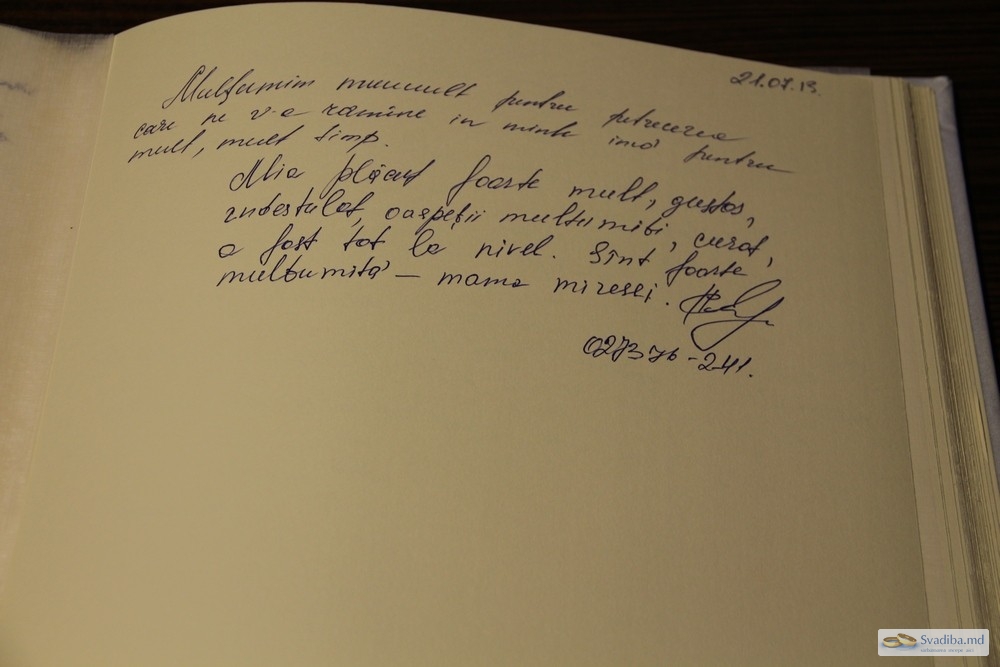 21.07.13.
Mulțumim mult pentru petrecerea
care ne v-a rămîne în minte încă pentru
mult, mult timp.
Mia plăcut foarte mult, gustos,
îndestulat, oaspeții multumiți, curat,
a fost tot la nivel. Sînt foarte
multumită – mama miresei.
027376-241.
Svadiba.md